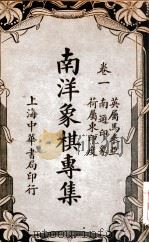 卷一
英屬馬來亞
南遊印象
荷屬東印度
南洋象棋專集
上海中華書局印行